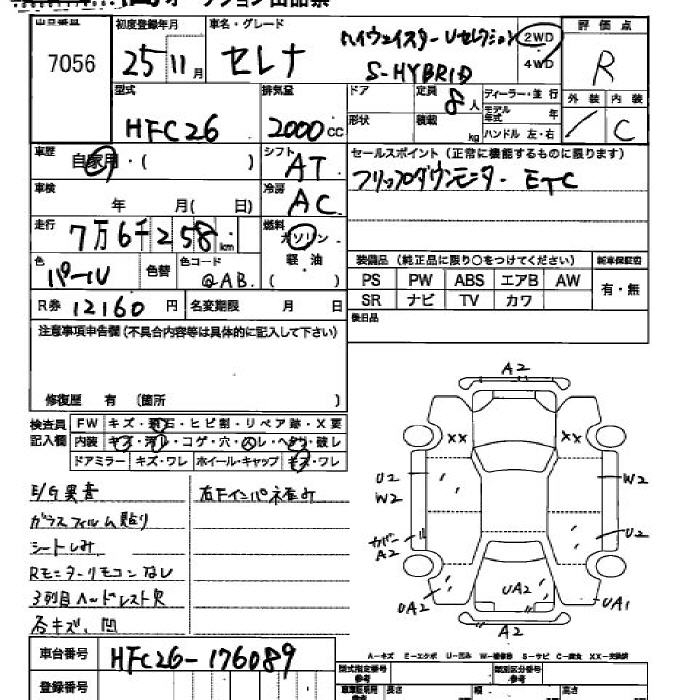 7056
初度登録年月
25 11月
車名・グレード
セレナ
ハイウェイスター Vセレクション
S-HYBRID
2WD
4WD
評価点
R
外装 内装
/ C
型式
HFC26
排気量
2000cc
ドア
形状
定員
8人
積載
kg
ディーラー・並行
モデル年式 年
ハンドル 左・右
車歴
自家用・( )
シフト
AT
セールスポイント (正常に機能するものに限ります)
フリップダウンモニター ETC
車検
年 月( 日)
冷房
AC
走行
7万6千258km
燃料
ガソリン・
軽油
( )
色
パール
色替
色コード
QAB.
装備品 (純正品に限り○をつけてください)
新車保証書
PS PW ABS エアB AW
有・無
SR ナビ TV カワ
R券 12160円
名変期限 月 日
後日品
注意事項申告欄(不具合内容等は具体的に記入して下さい)
修復歴 有 (箇所 )
検査員
記入欄
FW キズ・飛石・ヒビ割・リペア跡・X要
内装 キズ・汚レ・コゲ・穴・スレ・ヘタリ・破レ
ドアミラー キズ・ワレ ホイール・キャップ キズ・ワレ
E/G異音
ガラスフィルム貼り
シートしみ
Rモニターリモコンなし
3列目ヘッドレスト欠
各キズ、凹
右Fインパネ歪み
A2
XX XX
U2
W2
W2
カバー
A2
U2
UA2
UA2
UA1
A2
A-キズ E-エクボ U-凹み W-補修跡 S-サビ C-腐食 XX-交換済
車台番号
HFC26-176089
登録番号
型式指定番号
参考
類別区分番号
参考
長さ
幅
高さ